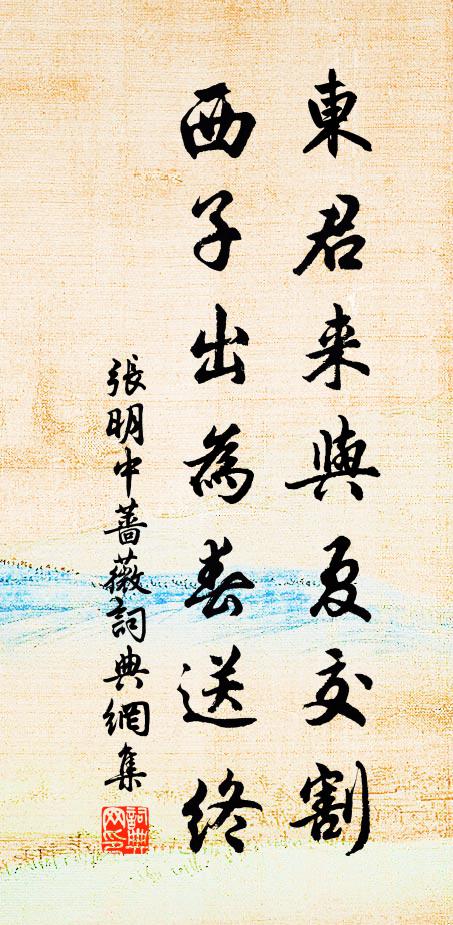 東君来與夏交割
西子出為春送終
張明中薔薇詞典網集
詞典網印